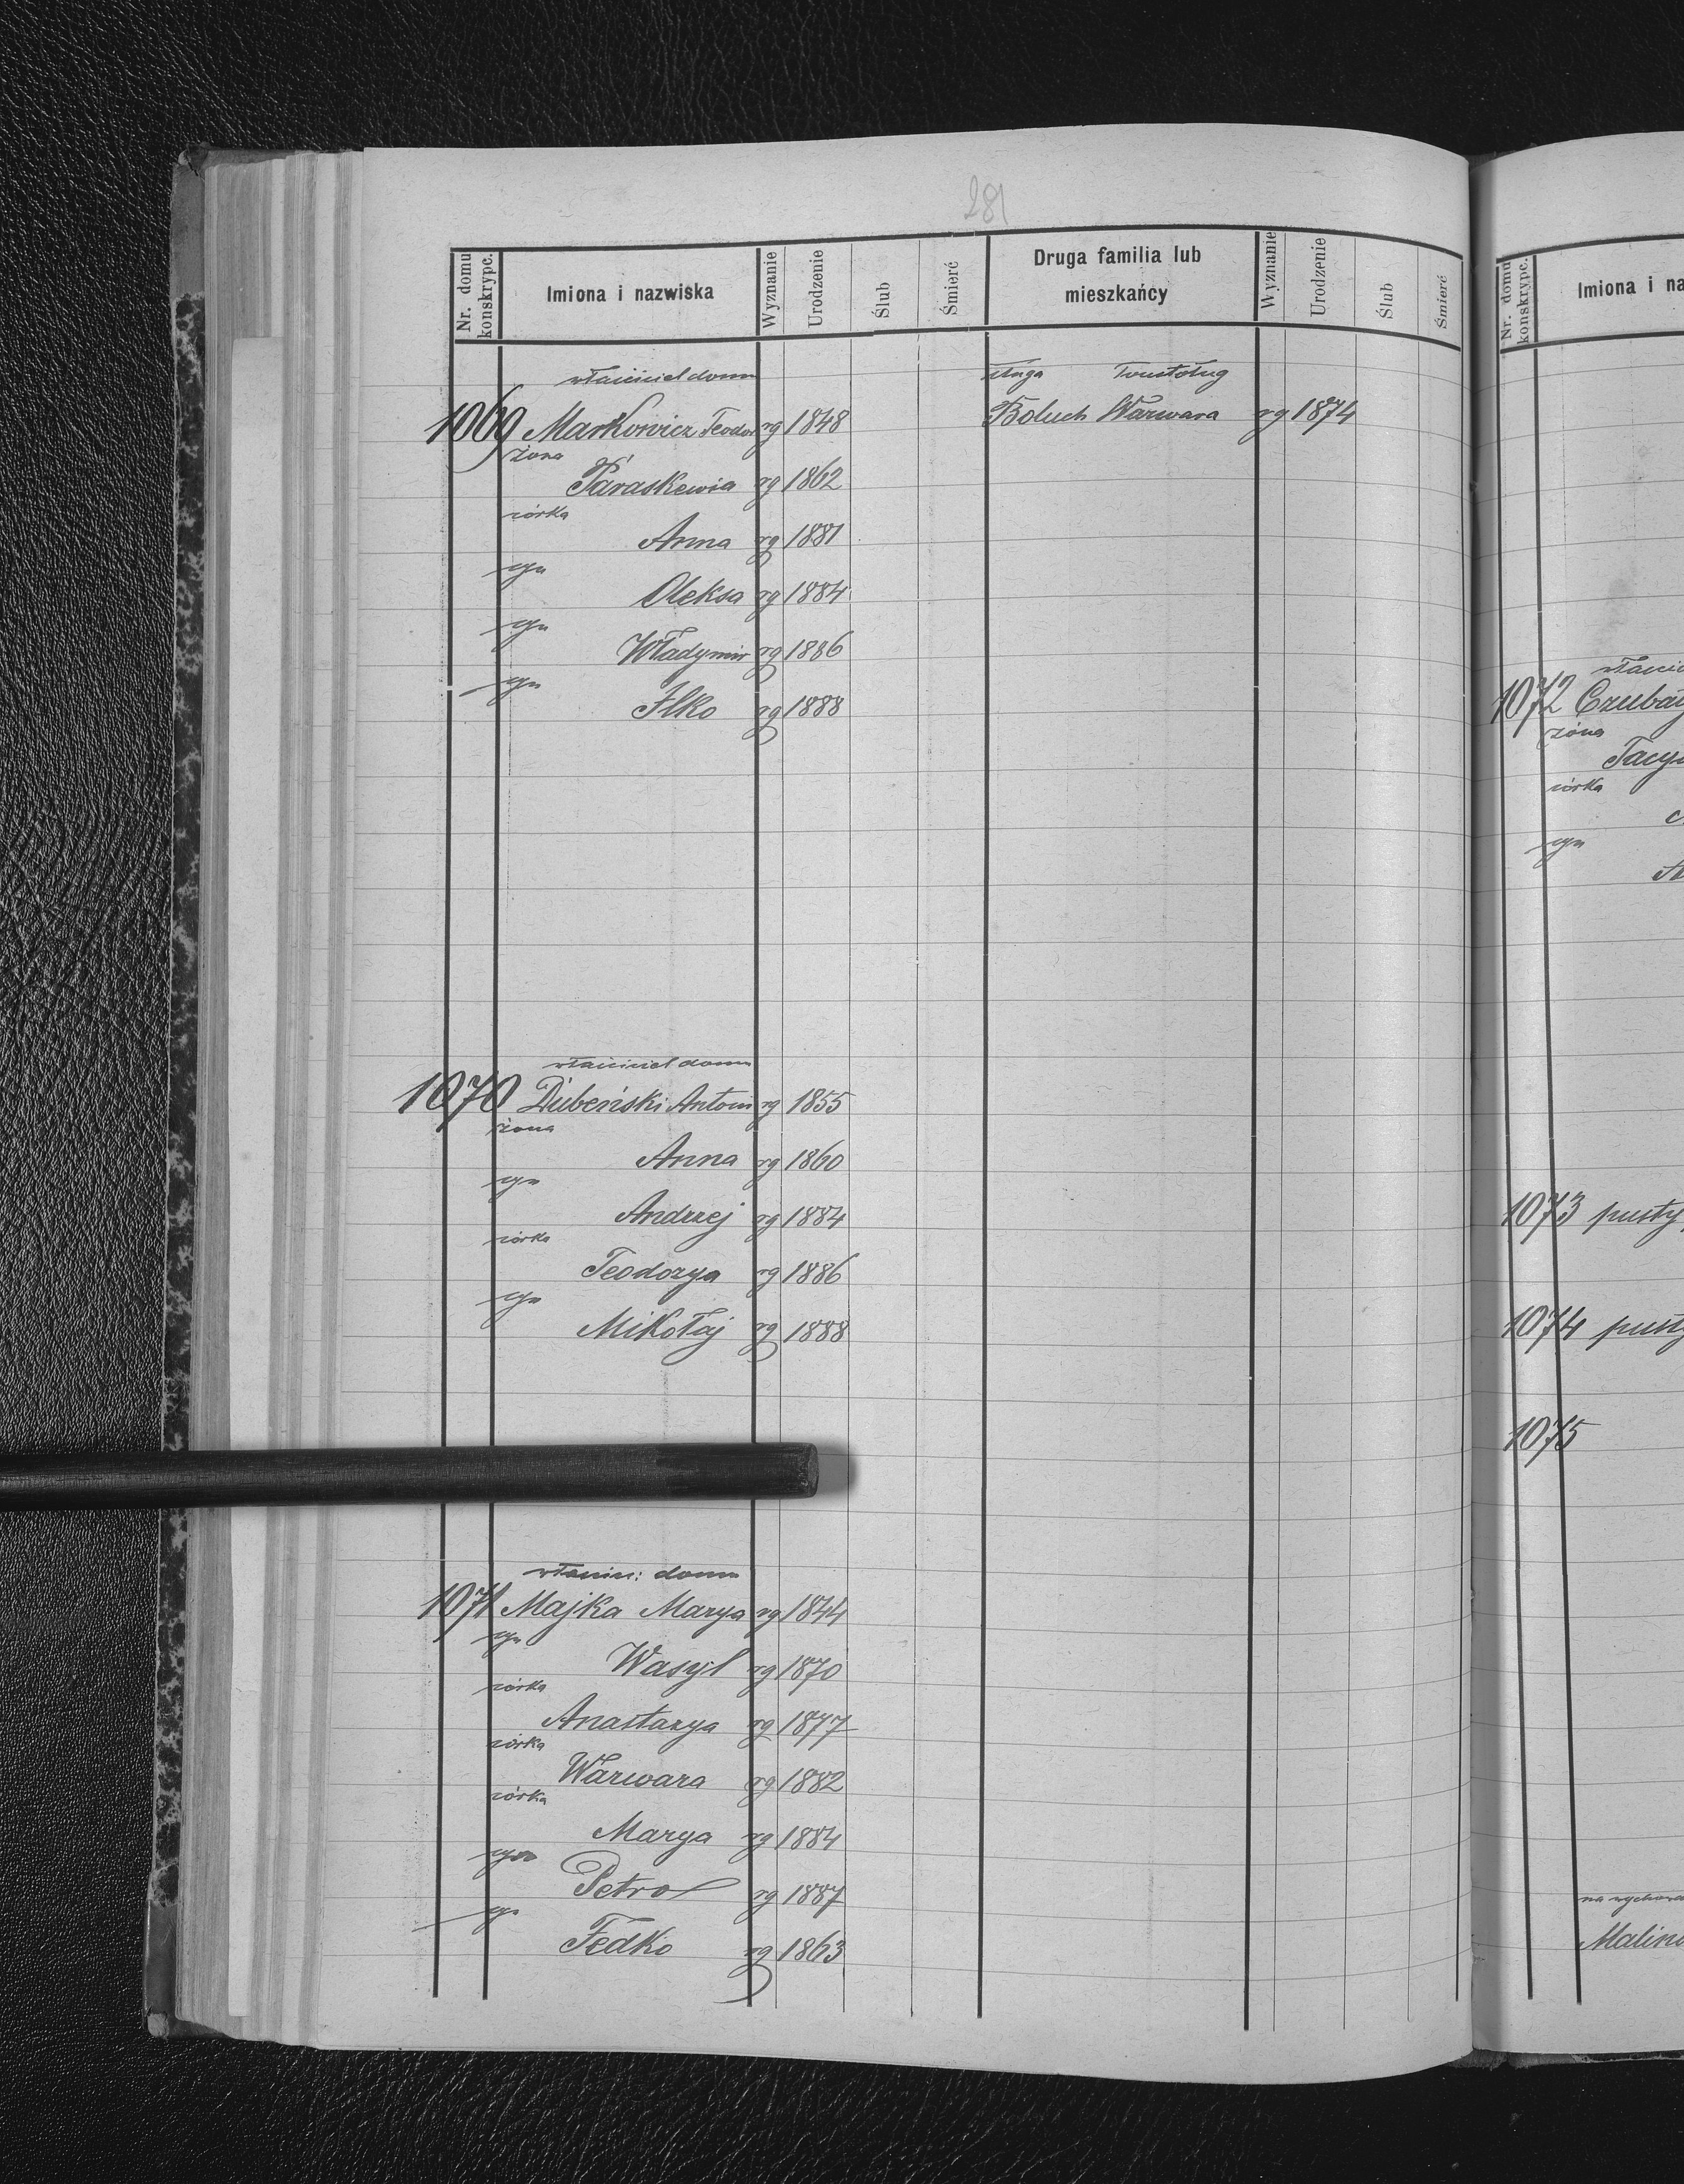 281
Nr. domu konskrypc. Imiona i nazwiska Wyznanie Urodzenie Ślub Śmierć Druga familia lub mieszkańcy Wyznanie Urodzenie Ślub Śmierć
właściciel domu sługa Toustoług
1069 Markowicz Teodor rg 1848 Boluch Warwara rg 1874
żona
Paraskewia rg 1862
córka
Anna rg 1881
syn
Oleksa rg 1884
syn
Władymir rg 1886
syn
Ilko rg 1888
właściciel domu
1070 Dubeński Antoni rg 1855
żona
Anna rg 1860
syn
Andrzej rg 1884
córka
Teodozya rg 1886
syn
Mikołaj rg 1888
właścic: domu
1071 Majka Marya rg 1844
syn
Wasyl rg 1870
córka
Anastazya rg 1877
córka
Warwara rg 1882
córka
Marya rg 1884
syn
Petro rg 1887
syn
Fedko rg 1863
Nr. domu konskrypc. Imiona i na
właści
1072 Czubaty
żona
Tacy
córka
syn
1073 pusty
1074 pusty
1075
na wychowa
Malino